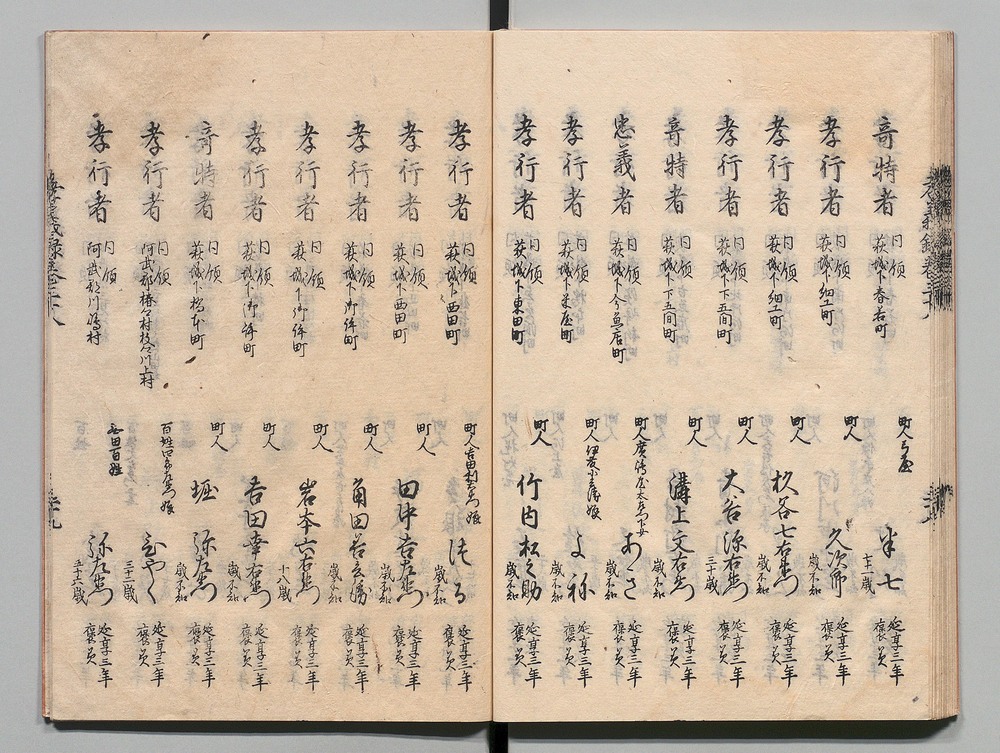 奇特者 同領 萩城下春若町 町人 半七 七十二歳 延享三年 褒美
孝行者 同領 萩城下細工町 町人 久次郎 歳不知 延享三年 褒美
孝行者 同領 萩城下細工町 町人 杦谷七右衛門 歳不知 延享三年 褒美
孝行者 同領 萩城下下五間町 町人 大谷源右衛門 三十歳 延享三年 褒美
奇特者 同領 萩城下下五間町 町人 溝上文右衛門 歳不知 延享三年 褒美
忠義者 同領 萩城下今魚店町 町人 あさ 歳不知 延享三年 褒美
孝行者 同領 萩城下米屋町 町人 よね 歳不知 延享三年 褒美
孝行者 同領 萩城下東田町 町人 竹内松之助 歳不知 延享三年 褒美
孝行者 同領 萩城下西田町 町人吉田利右衛門娘 つる 歳不知 延享三年 褒美
孝行者 同領 萩城下西田町 町人 田中吉左衛門 歳不知 延享三年 褒美
孝行者 同領 萩城下御許町 町人 角田 歳不知 延享三年 褒美
孝行者 同領 萩城下御許町 町人 岩本六右衛門 十八歳 延享三年 褒美
孝行者 同領 萩城下御許町 町人 吉田幸右衛門 歳不知 延享三年 褒美
奇特者 同領 萩城下橋本町 町人 堀弥左衛門 歳不知 延享三年 褒美
孝行者 同領 阿武郡椿郷村枝郷川上村 百姓 娘 三十二歳 延享三年 褒美
孝行者 同領 阿武郡川嶋村 無田百姓 弥左衛門 五十六歳 延享三年 褒美